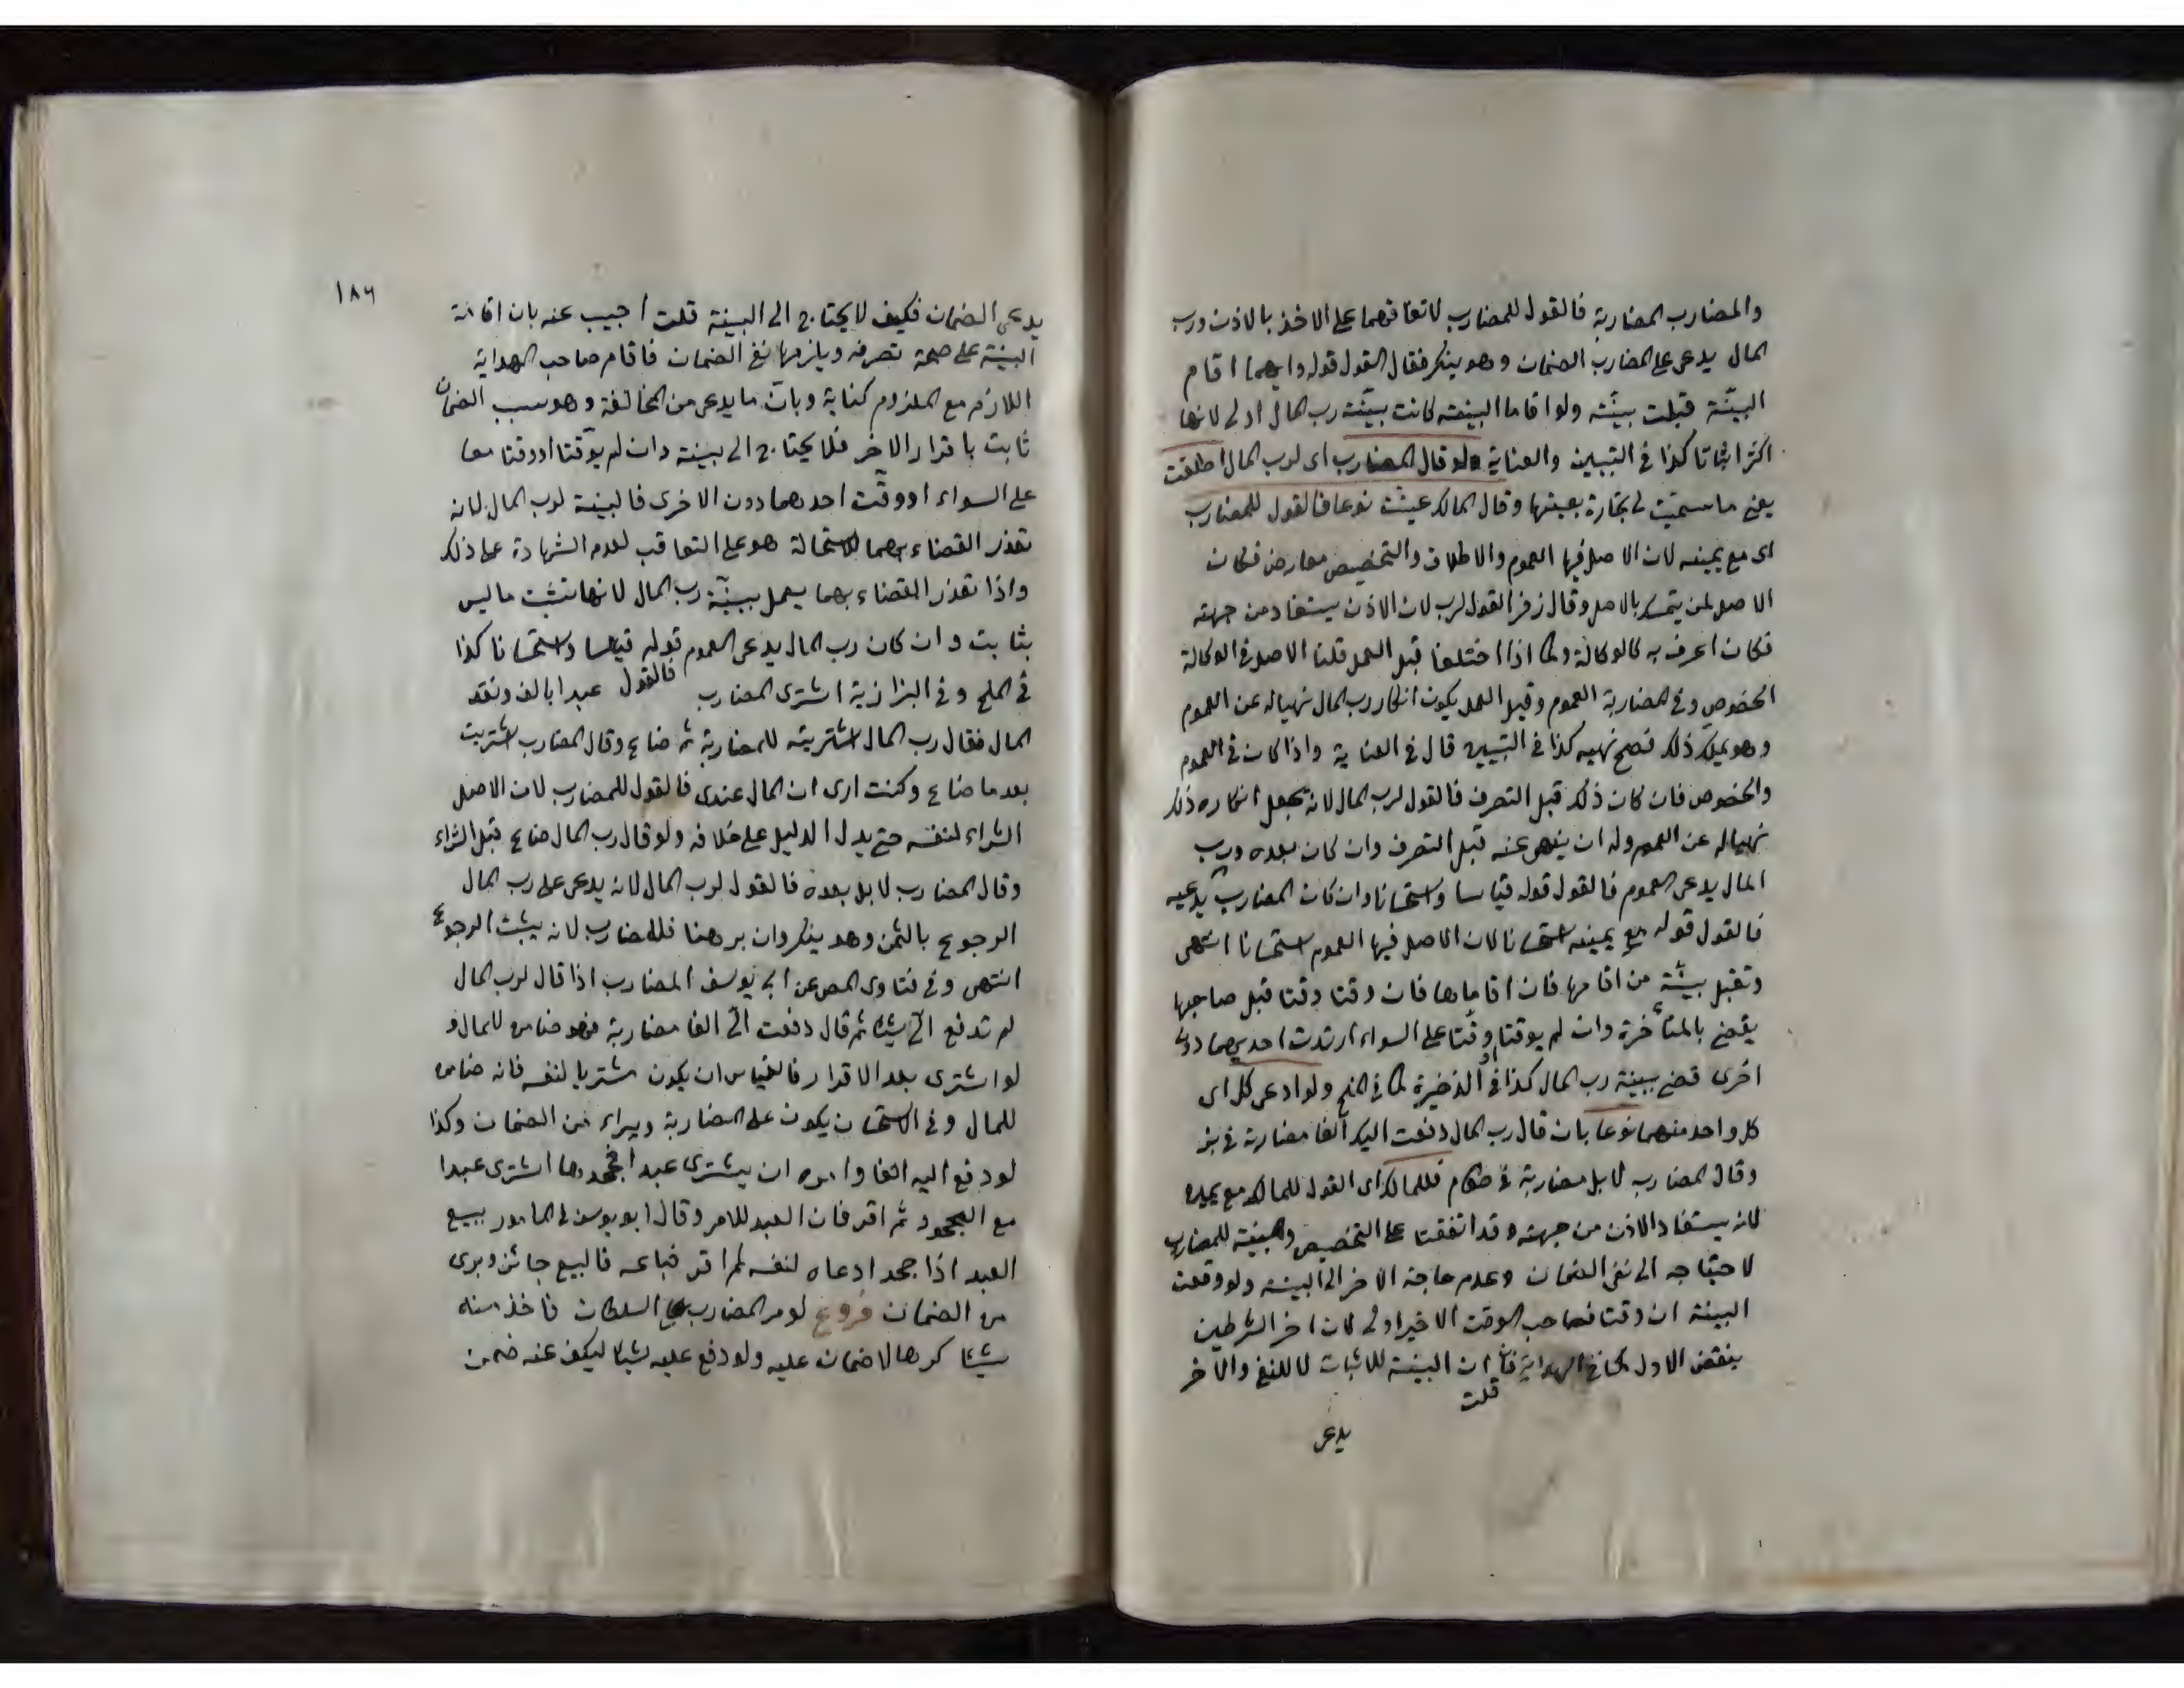 والمضارب المضاربة فالقول للمضارب لاتفاقهما على الاخذ بالاذن ورب
المال يدعى على المضارب الضمان وهو ينكر فقال القول قوله وايهما اقام
البينة قبلت بينته ولو اقاما البينة كانت بينة رب المال اولى لانها
اكثر اثباتا كذا فى التبيين والعناية ولو قال المضارب اى لرب المال اطلقت
يعنى ما سميت لى تجارة بعينها وقال المالك عينت نوعا فالقول للمضارب
اى مع يمينه لان الاصل فيها العموم والاطلاق والتخصيص معارض فكان
الاصل لمن يتمسك بالاصل وقال زفر القول لرب لان الاذن يستفاد من جهته
فكان اعرف به كالوكالة وكما اذا اختلفا قبل العمل قلنا الاصل فى الوكالة
الخصوص وفى المضاربة العموم وقبل العمل يكون انكار رب المال نهيا له عن العموم
وهو يملك ذلك فصح نهيه كذا فى التبيين قال فى العناية واذا كان فى العموم
والخصوص فان كان ذلك قبل التصرف فالقول لرب المال لانه يجعل انكاره ذلك
نهيا له عن العموم وله ان ينهى عنه قبل التصرف وان كان بعده ورب
المال يدعى العموم فالقول قوله قياسا واستحسانا وان كان المضارب يدعيه
فالقول قوله مع يمينه استحسانا لان الاصل فيها العموم استحسانا انتهى
وتقبل بينة من اقامها فان اقاماها فان وقتا وقتا قبل صاحبها
يقضى بالمتأخرة وان لم يوقتا او وقتا على السواء او احديهما دون
اخرى قضى ببينة رب المال كذا فى الذخيرة كما فى المنح ولو ادعى كل اى
كل واحد منهما نوعا بان قال رب المال دفعت اليك الفا مضاربة فى بز
وقال المضارب لا بل مضاربة فى طعام فللمالك اى القول للمالك مع يمينه
لانه يستفاد الاذن من جهته وقد اتفقتا على التخصيص والبينة للمضارب
لاحتياجه الى نفى الضمان وعدم حاجة الاخر الى البينة ولو وقعت
البينة ان وقتا فصاحب الوقت الاخير اولى لان اخر الشرطين
ينقض الاول كما فى الهداية فان البينة للاثبات لا للنفى والاخر
قلت
يدعى
١٨٦
يدعى الضمان فكيف لا يحتاج الى البينة قلت اجيب عنه بان اقامة
البينة على صحة تصرفه ويلزمها نفى الضمان فاقام صاحب الهداية
اللازم مع الملزوم كناية وبان ما يدعى من المخالفة وهو سبب الضمان
ثابت باقرار الاخر فلا يحتاج الى بينة وان لم يوقتا او وقتا معا
على السواء او وقت احدهما دون الاخرى فالبينة لرب المال لانه
تعذر القضاء بهما لاستحالة هو على التعاقب لعدم الشهادة على ذلك
واذا تعذر القضاء بهما يعمل ببينة رب المال لانها تثبت ما ليس
بثابت وان كان رب المال يدعى العموم فالقول قوله قياسا واستحسانا كذا
فى المنح وفى البزازية اشترى المضارب عبدا بالف ونقد
المال فقال رب المال اشتريته للمضاربة ثم ضاع وقال المضارب اشتريت
بعد ما ضاع وكنت ارى ان المال عندى فالقول للمضارب لان الاصل
الشراء لنفسه حتى يدل الدليل على خلافه ولو قال رب المال ضاع قبل الشراء
وقال المضارب لا بل بعده فالقول لرب المال لانه يدعى على رب المال
الرجوع بالثمن وهو ينكر وان برهنا فللمضارب لانه يثبت الرجوع
انتهى وفى فتاوى المص عن ابى يوسف المضارب اذا قال لرب المال
لم تدفع الى شيئا ثم قال دفعت الى الفا مضاربة فهو ضامن للمال و
لو اشترى بعد الاقرار فالقياس ان يكون مشتريا لنفسه فانه ضامن
للمال وفى الاستحسان يكون على المضاربة ويبراء من الضمان وكذا
لو دفع اليه الفا وامره ان يشترى عبدا فجحدها اشترى عبدا
مع الجحود ثم اقر فان العبد للامر وقال ابو يوسف فى المامور ببيع
العبد اذا جحد ادعاه لنفسه ثم اقر فباعه فالبيع جائز وبرى
من الضمان فروع لو مر المضارب على السلطان فاخذ منه
شيئا كرها لا ضمان عليه ولو دفع عليه شيئا ليكف عنه ضمن